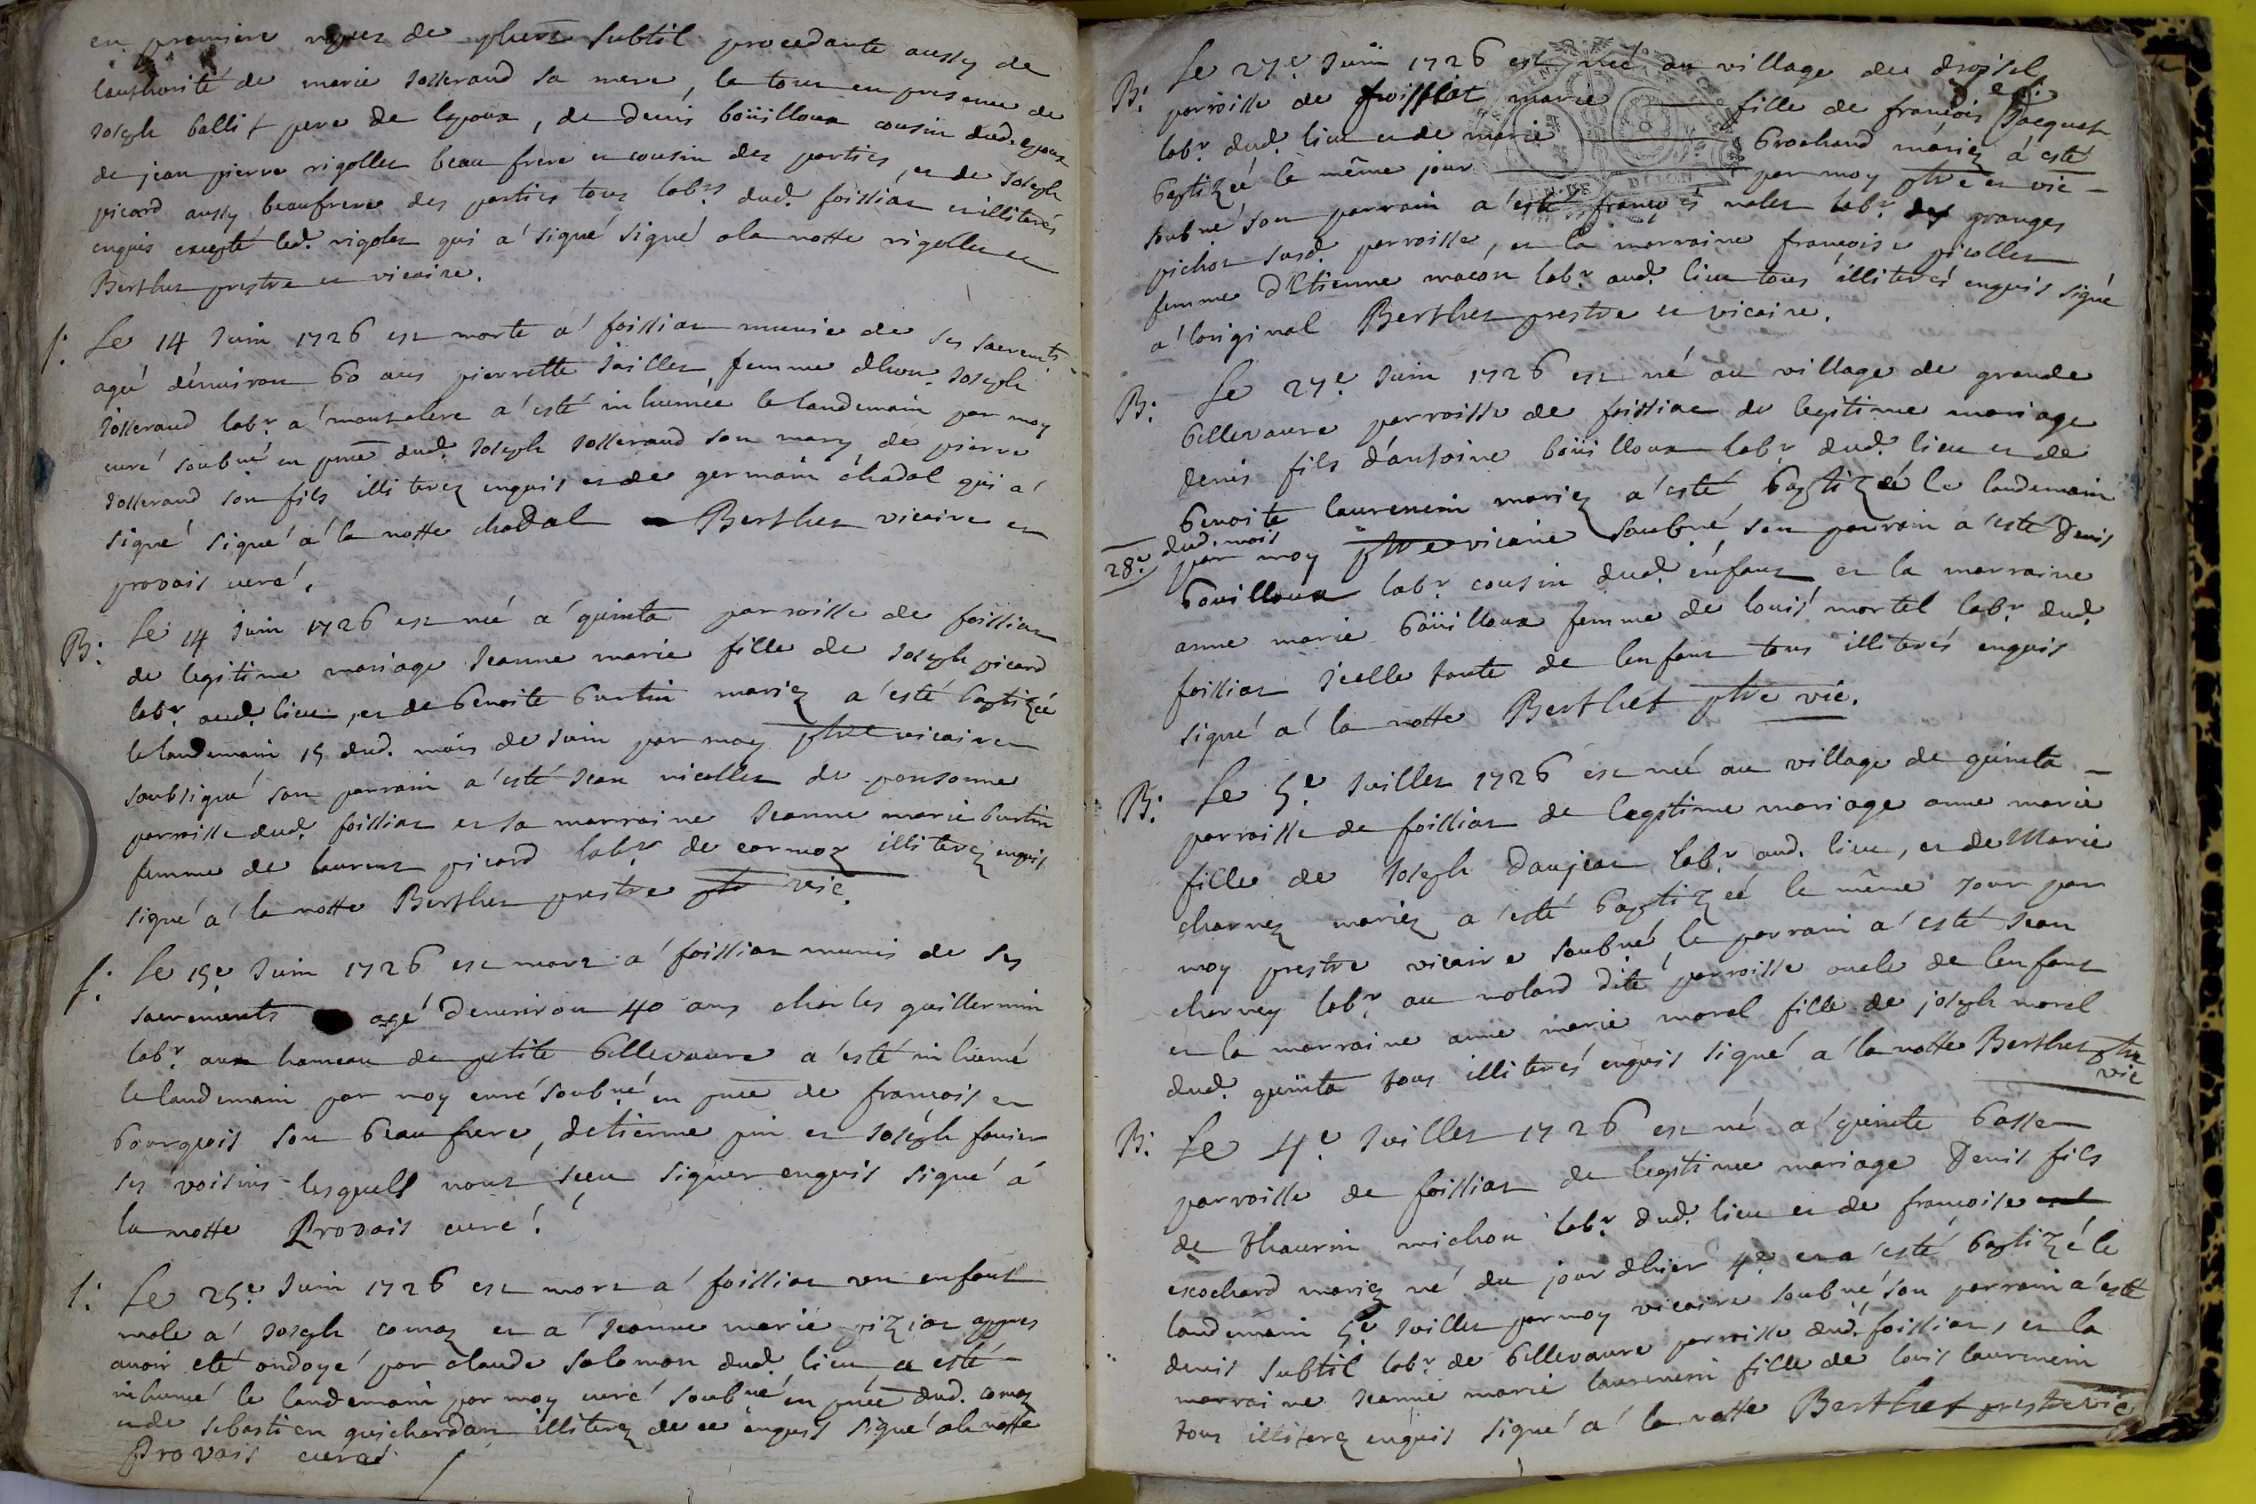 en premiere noces de subtil procedante aussy de
lauthorité de marie josserand sa mere, le tout en presence de
joseph ballif pere de lepoux, de denis boüilloux cousin dud. epoux
de jean pierre rigollet beau frere et cousin des parties, et de joseph
picard aussy beaufrere des parties tous labrs dud. foissiat et illiterés
enquis excepté led. rigolet qui a signé signé a la notte rigollet et
Berthet prestre et vicaire.
f: Le 14 juin 1726 est morte a foissiat munie de ses sacremts
agée d'environ 60 ans pierrette jaillet femme dhon. joseph
josserand labr. a a esté inhumée le landemain par moy
curé soubné en pnce dud. joseph josserand son mary, de pierre
josserand son fils illiterez enquis et de germain chadal qui a
signé signé a la notte chadal Berthet vicaire et
provais curé.
B: Le 14 juin 1726 est née a quinta parroisse de foissiat
de legitime mariage jeanne marie fille de joseph picard
labr. aud. lieu, et de benoite burtin mariez a esté baptizée
le landemain 15 dud. mois de juin par moy ptre vicaire
soubsigné son parrain a esté jean nicollet de ponsonne
parroisse dud. foissiat et sa marraine jeanne marie burtin
femme de laurent picard labr. de cormoz illiterez enquis
signé a la notte Berthet prestre ptre vic.
f: Le 15e juin 1726 est mort a foissiat munis de ses
sacrements agé denviron 40 ans charles guillermin
labr. aux hameau de petite bellevavre a esté inhumé
le landemain par moy curé soubné en pnce de francois
bourgeois son beaufrere, detienne pin et joseph
ses voisins lesquels nont sceu signer enquis signé a
la notte Provais curé.
f: Le 25e juin 1726 est mort a foissiat un enfant
male a joseph comaz et a jeanne marie appres
avoir eté ondoyé par claude salomon dud. lieu, a esté
inhumé le landemain par moy curé soubné en pnce dud. comaz
et de sebastien guichardan illiterez de ce enquis signé a la notte
Provais curé
B: Le 27e juin 1726 est née au village de
parroisse de foissiat marie fille de francois jacquet
labr. dud. lieu et de marie brochand mariez a esté
baptizée le même jour par moy ptre et vic
soubné son parrain a esté francois nolet labr. des granges
pichot susd. parroisse, et la marraine francoise picollet
femme d'Etienne macon labr. aud. lieu tous illiterés enquis signé
a loriginal Berthet prestre et vicaire.
B: Le 27e juin 1726 est né au village de grande
bellevavre parroisse de foissiat de legitime mariage
denis fils d'antoine boüilloux labr. dud. lieu et de
benoite laurencin mariez a esté baptizé le landemain
28e dud. mois
par moy ptre vicaire soubné, son parrain a esté Denis
bouilloux labr. cousin dud. enfant et la marraine
anne marie boüilloux femme de louis mortel labr. dud.
foissiat icelle tante de lenfant tous illiterés enquis
signé a la notte Berthet ptre vic.
B: Le 5e juillet 1726 est née au village de quinta
parroisse de foissiat de legitime mariage anne marie
fille de joseph Daujeat labr. aud. lieu, et de Marie
charvet mariez a esté baptizée le même jour par
moy prestre vicaire soubné, le parrain a esté jean
charvey labr. au molard dite parroisse oncle de lenfant
et la marraine anne marie morel fille de joseph morel
dud. quinta tous illiterés enquis signé a la notte Berthet ptre
vic
B: Le 4e juillet 1726 est né a quinte basse
parroisse de foissiat de legitime mariage Denis fils
de thaurin michon labr. dud. lieu et de francoise
escochard mariez né du jour dhier 4e et a esté baptizé le
landemain 5e juillet par moy vicaire soubné son parrain a esté
denis subtil labr. de bellevavre parroisse dud. foissiat, et la
marraine jeanne marie laurencin fille de louis laurencin
tous illiterez enquis signé a la notte Berthet prestre vic.